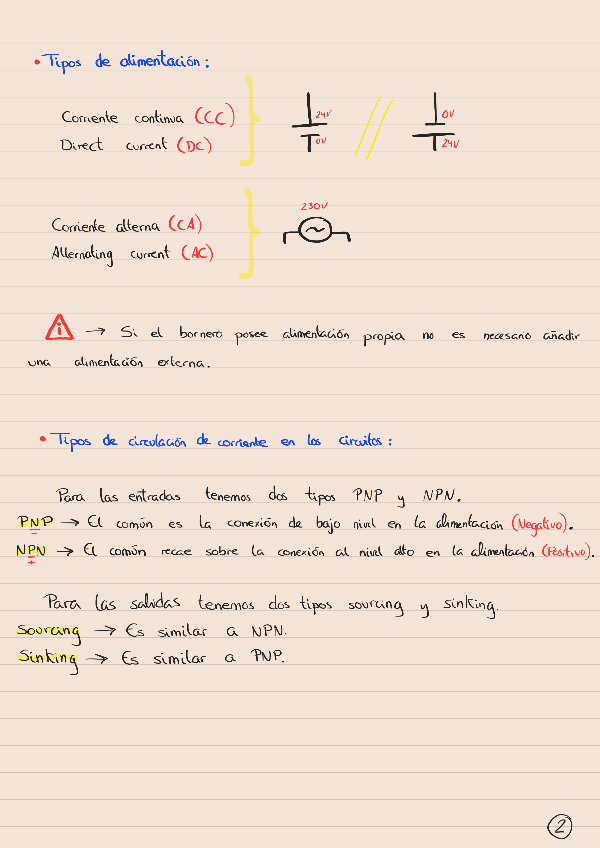 • Tipos de alimentación:
Corriente continua (CC)
Direct current (DC)
24V
0V
0V
24V
230V
Corriente alterna (CA)
Alternating current (AC)
→ Si el bornero posee alimentación propia no es necesario añadir
una alimentación externa.
• Tipos de circulación de corriente en los circuitos:
Para las entradas tenemos dos tipos PNP y NPN.
PNP → El común es la conexión de bajo nivel en la alimentación (Negativo).
−
NPN → El común recae sobre la conexión al nivel alto en la alimentación (Positivo).
+
Para las salidas tenemos dos tipos sourcing y sinking.
Sourcing → Es similar a NPN.
Sinking → Es similar a PNP.
2